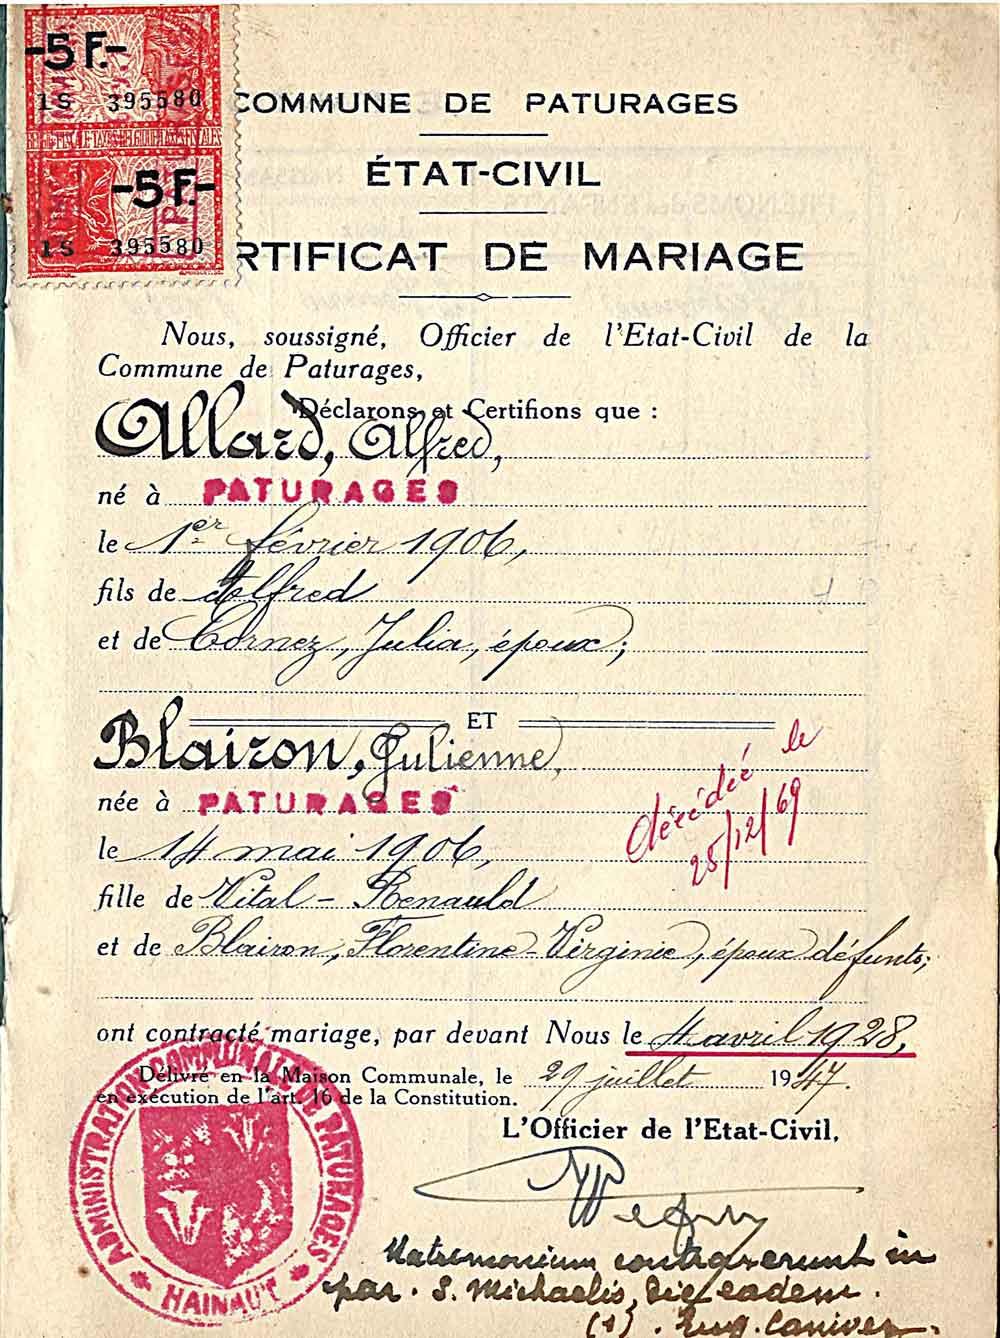 -5 F.-
1S 395580
-5 F.-
1S 395580
COMMUNE DE PATURAGES
ÉTAT-CIVIL
RTIFICAT DE MARIAGE
Nous, soussigné, Officier de l'Etat-Civil de la
Commune de Paturages,
Déclarons et Certifions que :
Allard, Alfred,
né à PATURAGES
le 1er février 1906,
fils de Alfred
et de Cornez, Julia, époux;
ET
Blairon, Julienne,
née à PATURAGES
le 14 mai 1906,
décédée le
25/12/69
fille de Vital - Renauld
et de Blairon, Florentine-Virginie, époux défunts;
ont contracté mariage, par devant Nous le 4 avril 1928,
Délivré en la Maison Communale, le 29 juillet 1947.
en exécution de l'art. 16 de la Constitution.
L'Officier de l'Etat-Civil,
ADMINISTRATION COMMUNALE DE PATURAGES
* HAINAUT *
Matrimonium contraxerunt in
par. S. Michaelis, die eadem.
(s). Eug. Caniver